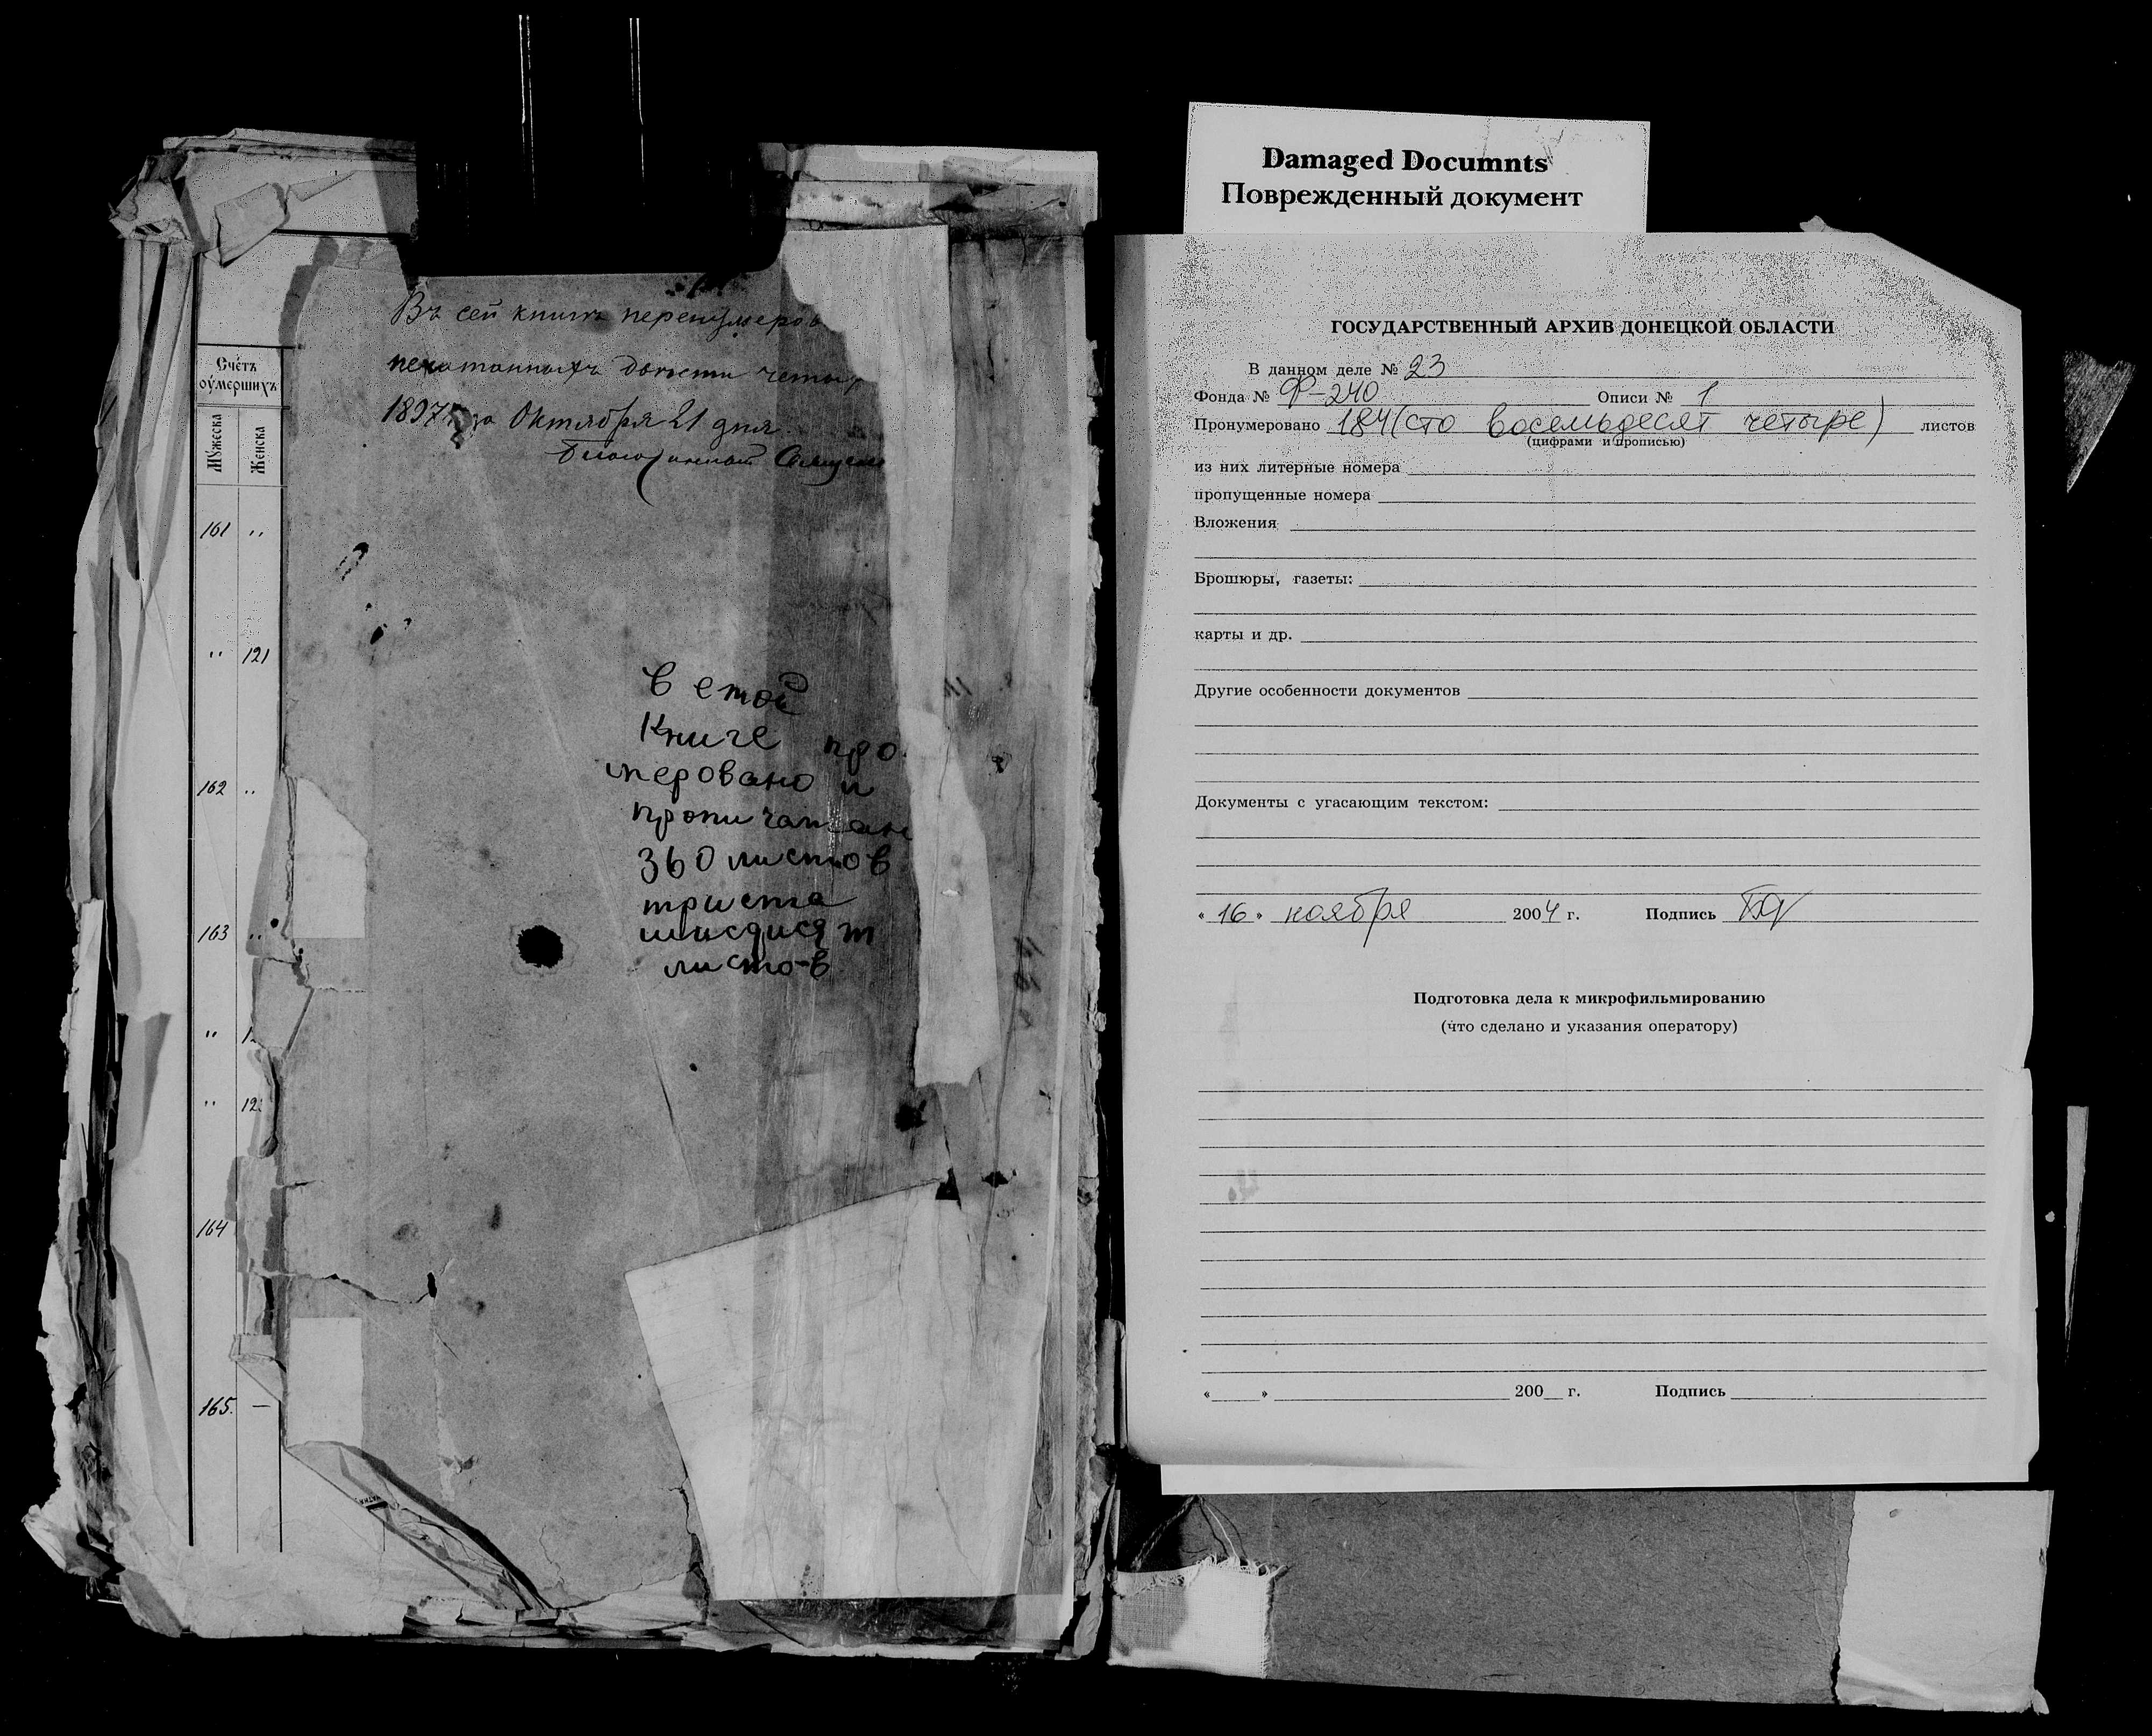 Счетъ
оумершихъ
Мужеска
Женска
161 "
" 121
162 "
163 "
"
" 12
164
165. —
Въ сей книгѣ перенумеров
печатанныхъ двѣсти четыр
1897 года Октября 21 дня.
Благочинный
в етой
Книге про
меровано и
пропичатан
360 листов
триста
шисдисят
листо-в
Damaged Documnts
Поврежденный документ
ГОСУДАРСТВЕННЫЙ АРХИВ ДОНЕЦКОЙ ОБЛАСТИ
В данном деле № 23
Фонда № Ф-240 Описи № 1
Пронумеровано 184 (сто восемьдесят четыре) листов
(цифрами и прописью)
из них литерные номера
пропущенные номера
Вложения
Брошюры, газеты:
карты и др.
Другие особенности документов
Документы с угасающим текстом:
« 16 » ноября 2004 г. Подпись
Подготовка дела к микрофильмированию
(что сделано и указания оператору)
« » 200 г. Подпись